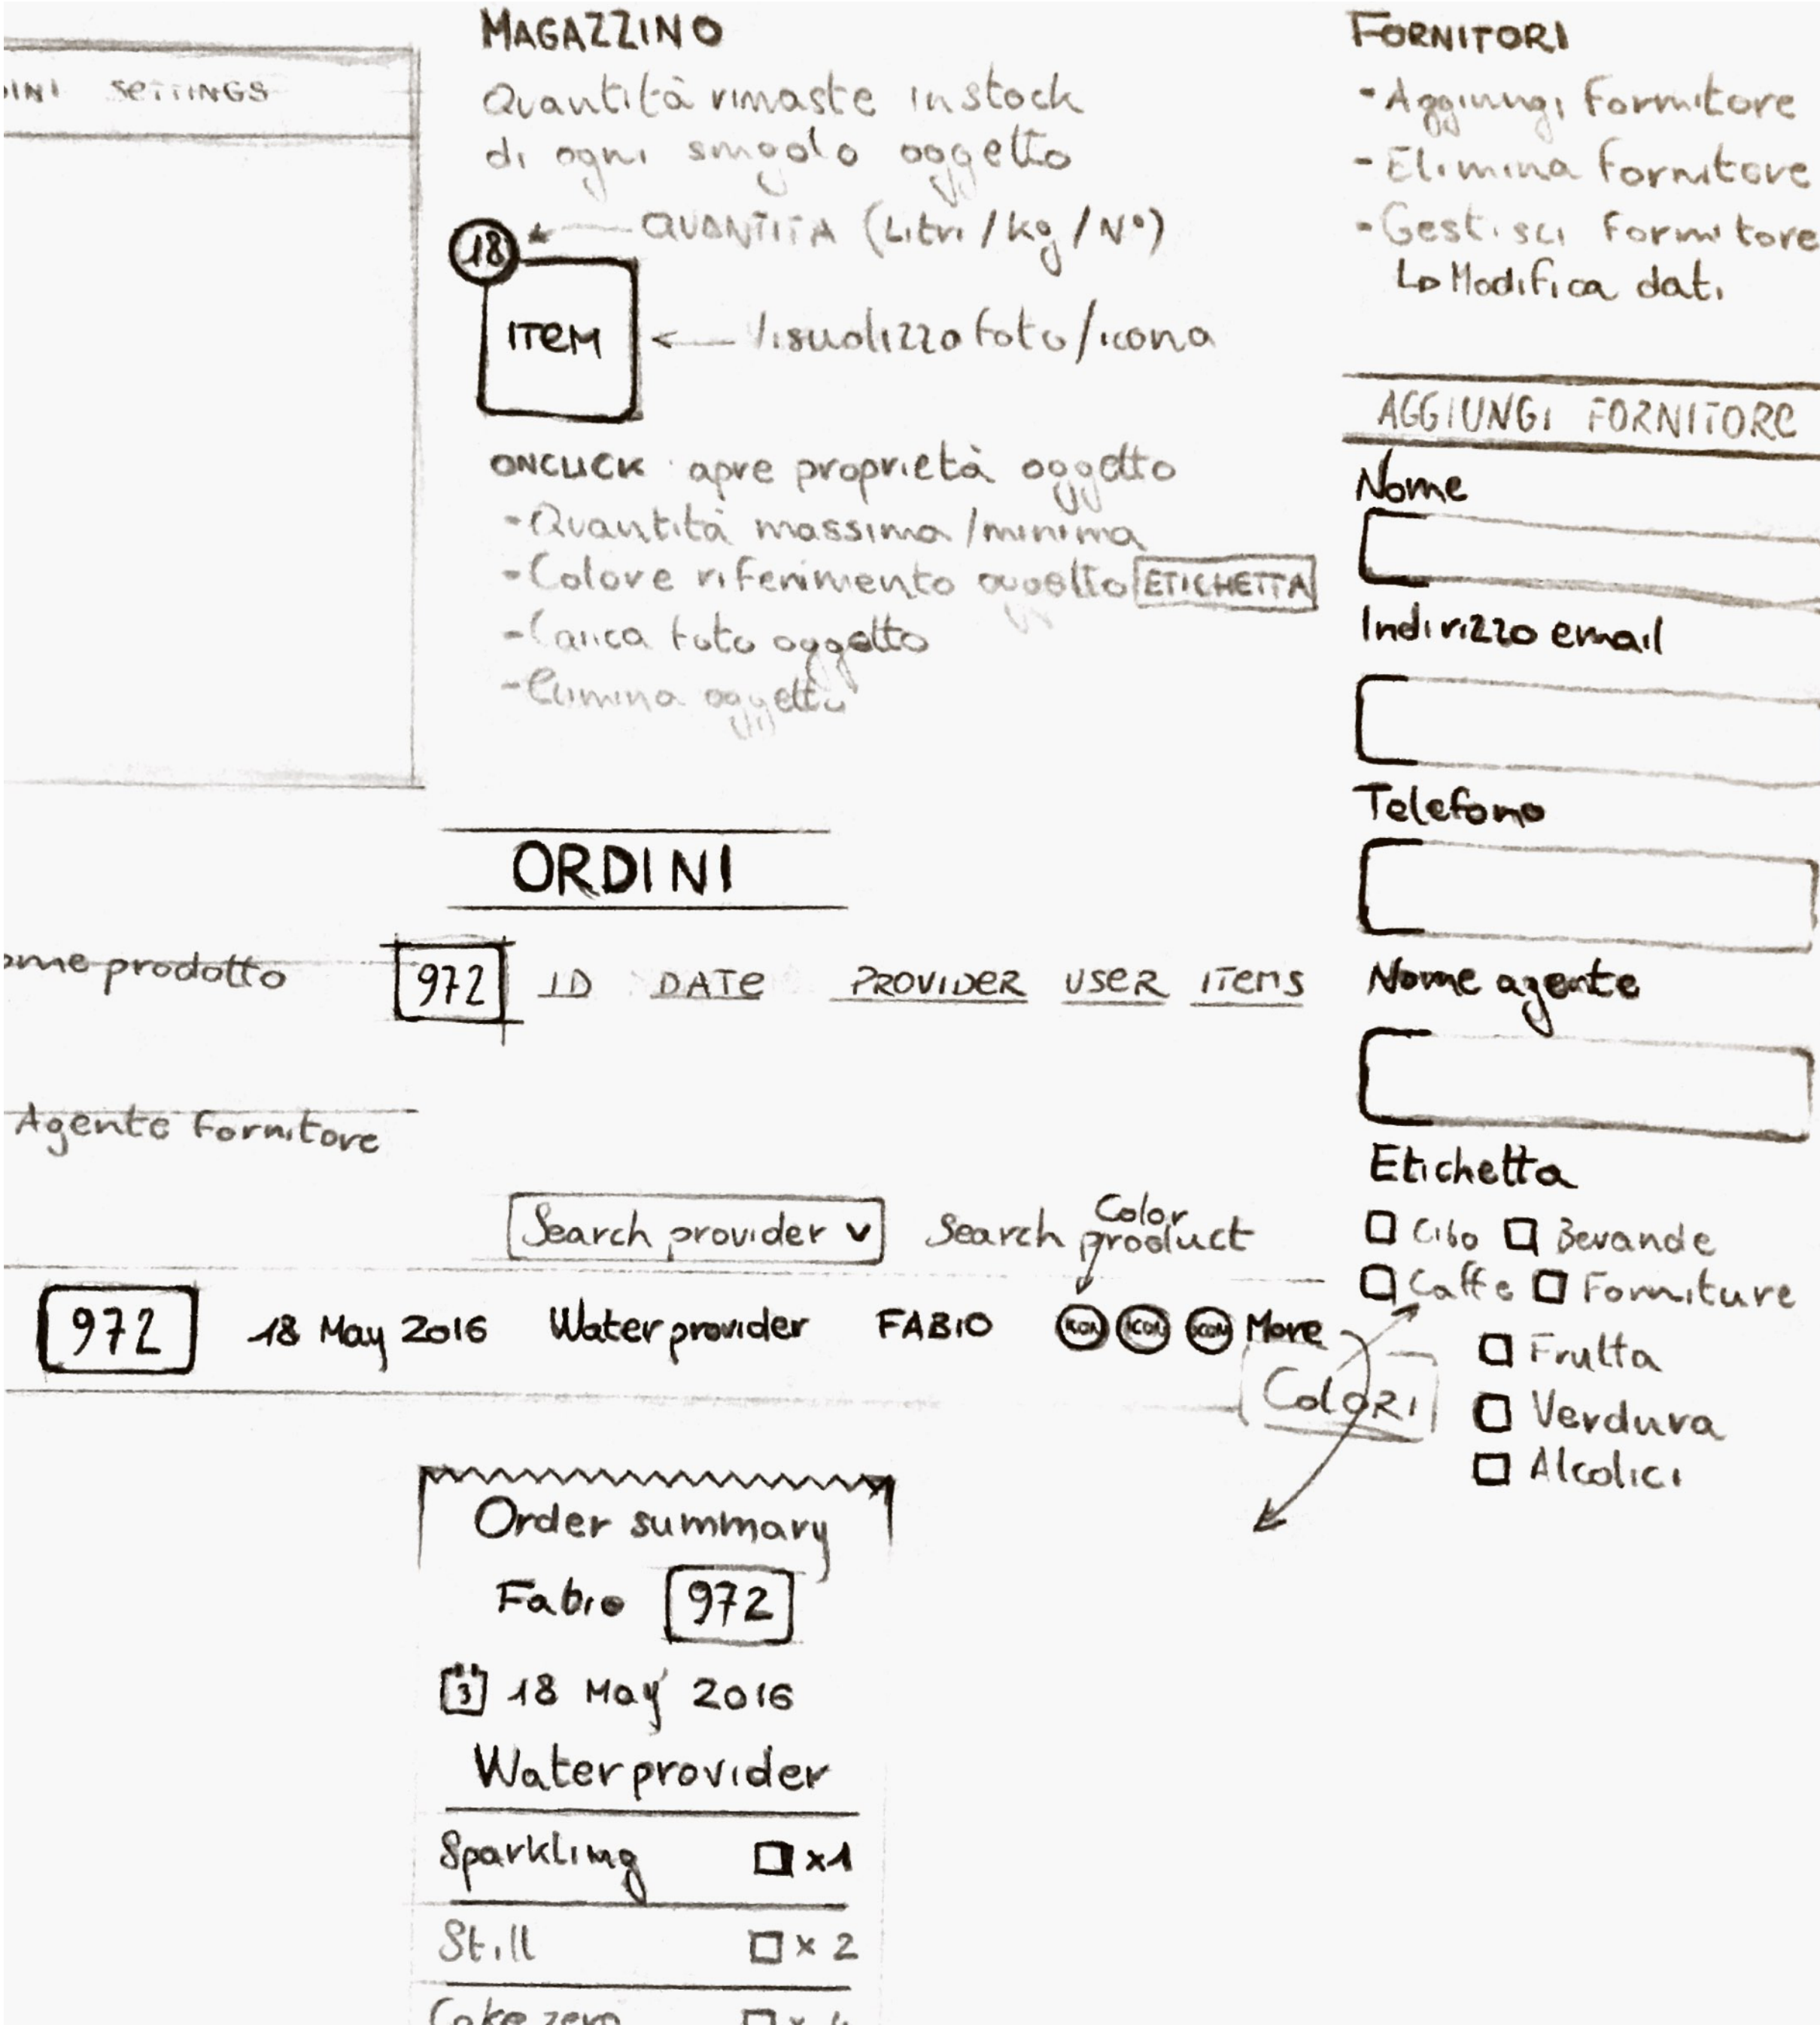 SETTINGS
MAGAZZINO
Quantità rimaste in stock
di ogni singolo oggetto
18
QUANTITÀ (Litri/kg/N°)
ITEM
Visualizza foto/icona
ONCLICK apre proprietà oggetto
-Quantità massima/minima
-Colore riferimento oggetto ETICHETTA
-Carica foto oggetto
-Elimina oggetto
FORNITORI
-Aggiungi fornitore
-Elimina fornitore
-Gestisci fornitore
Modifica dati
AGGIUNGI FORNITORE
Nome
Indirizzo email
Telefono
Nome agente
Etichetta
Cibo Bevande
Caffe Forniture
Frutta
Verdura
Alcolici
ORDINI
prodotto 972 ID DATE PROVIDER USER ITEMS
Agente fornitore
Search provider Search product
Color
972 18 May 2016 Water provider FABIO ICON ICON ICON More
COLORI
Order summary
Fabio 972
3 18 May 2016
Water provider
Sparkling x1
Still x 2
Coke zero x 4